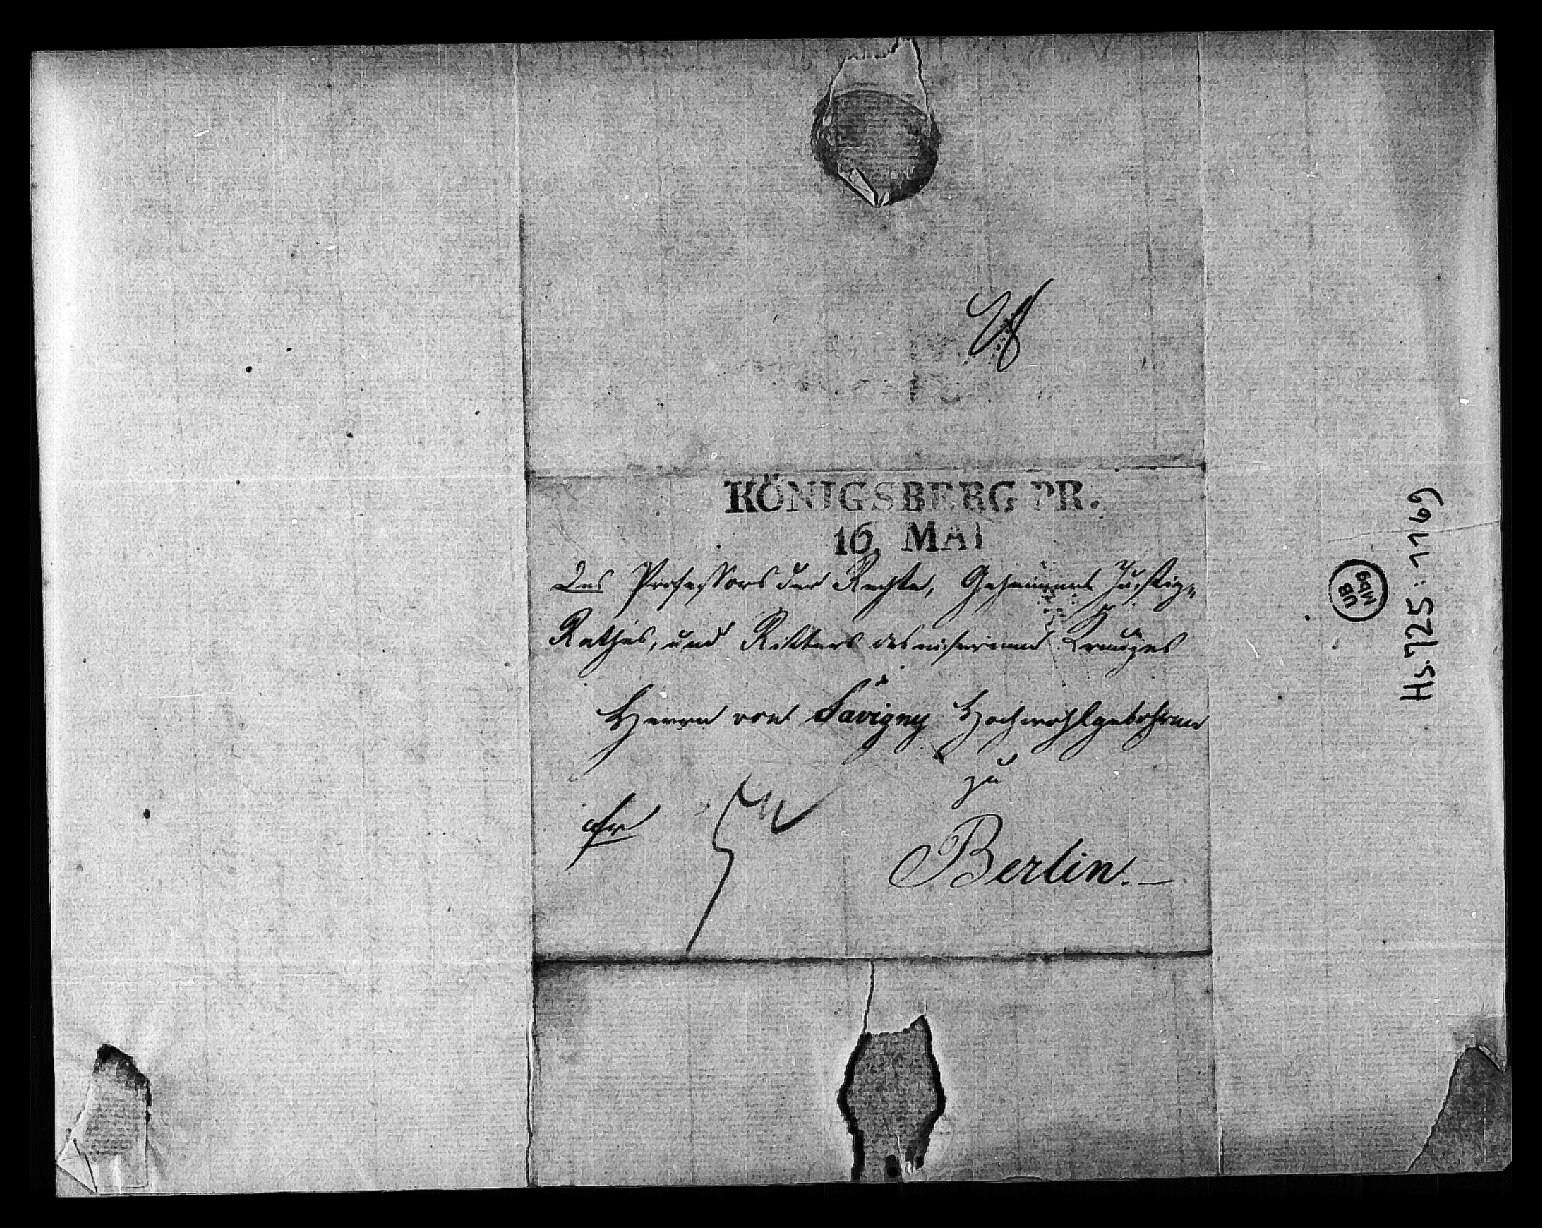 KÖNIGSBERG PR.
16 MAI
Des Professors der Rechte, Geheimen Justiz-
Rathes, und Ritters des eisernen Kreuzes
Herrn von Savigny Hochwohlgebohren
zu
fr
Berlin.
Hs. 725: 1169
UB
Mbg